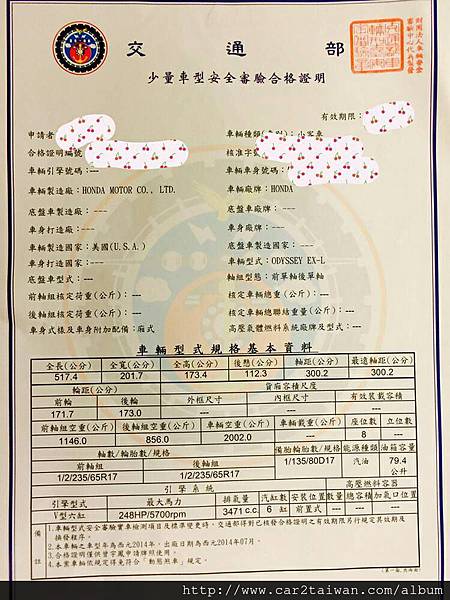 交 通 部
少量車型安全審驗合格證明
有效期限：
申請者
車輛種類 小客車
合格證明編號
核准字
車輛引擎號碼：---
車輛車身號碼：
車輛製造廠：HONDA MOTOR CO., LTD.
車輛廠牌：HONDA
底盤車製造廠：---
底盤車廠牌：---
車身打造廠：---
車身廠牌：---
車輛製造國家：美國(U.S.A.)
底盤車製造國家：---
車身打造國家：---
車輛型式：ODYSSEY EX-L
底盤車型式：---
軸組型態：前單軸後單軸
前軸組核定荷重(公斤)：---
核定車輛總重(公斤)：---
後軸組核定荷重(公斤)：---
核定車輛總聯結重量(公斤)：---
車身式樣及車身附加配備：廂式
高壓氣體燃料系統廠牌及型式：---
車輛型式規格基本資料
全長(公分) 全寬(公分) 全高(公分) 後懸(公分) 軸距(公分) 最遠軸距(公分)
517.4 201.7 173.4 112.3 300.2 300.2
輪距(公分) 貨廂容積尺度
前輪 後輪 外框尺寸 內框尺寸 有效裝載容積
171.7 173.0 --- --- ---
前軸組空重(公斤) 後軸組空重(公斤) 車輛空重(公斤) 車輛載重(公斤) 座位數 立位數
1146.0 856.0 2002.0 --- 8 ---
軸數/輪胎數/規格 備胎輪胎數/規格 能源種類 油箱容量
前軸組 後軸組 1/135/80D17 汽油 79.4
公升
1/2/235/65R17 1/2/235/65R17
引擎系統 高壓燃料容器
引擎型式 最大馬力 排氣量 汽缸數 安裝位置 數量 總容積 加氣口位置
V型六缸 248HP/5700rpm 3471 c.c. 6 缸 前置式 --- --- ---
備註
1.車輛型式安全審驗實車檢測項目及標準變更時，交通部得對已核發合格證明之有效期限另行規定其效期及
換發程序。
2.本車輛之車型年為西元2014年，出廠日期為西元2014年07月。
3.合格證明僅供曾宇鳳申請牌照使用。
4.本案車輛依規定得免符合「動態煞車」規定。
http://www.car2taiwan.com/album